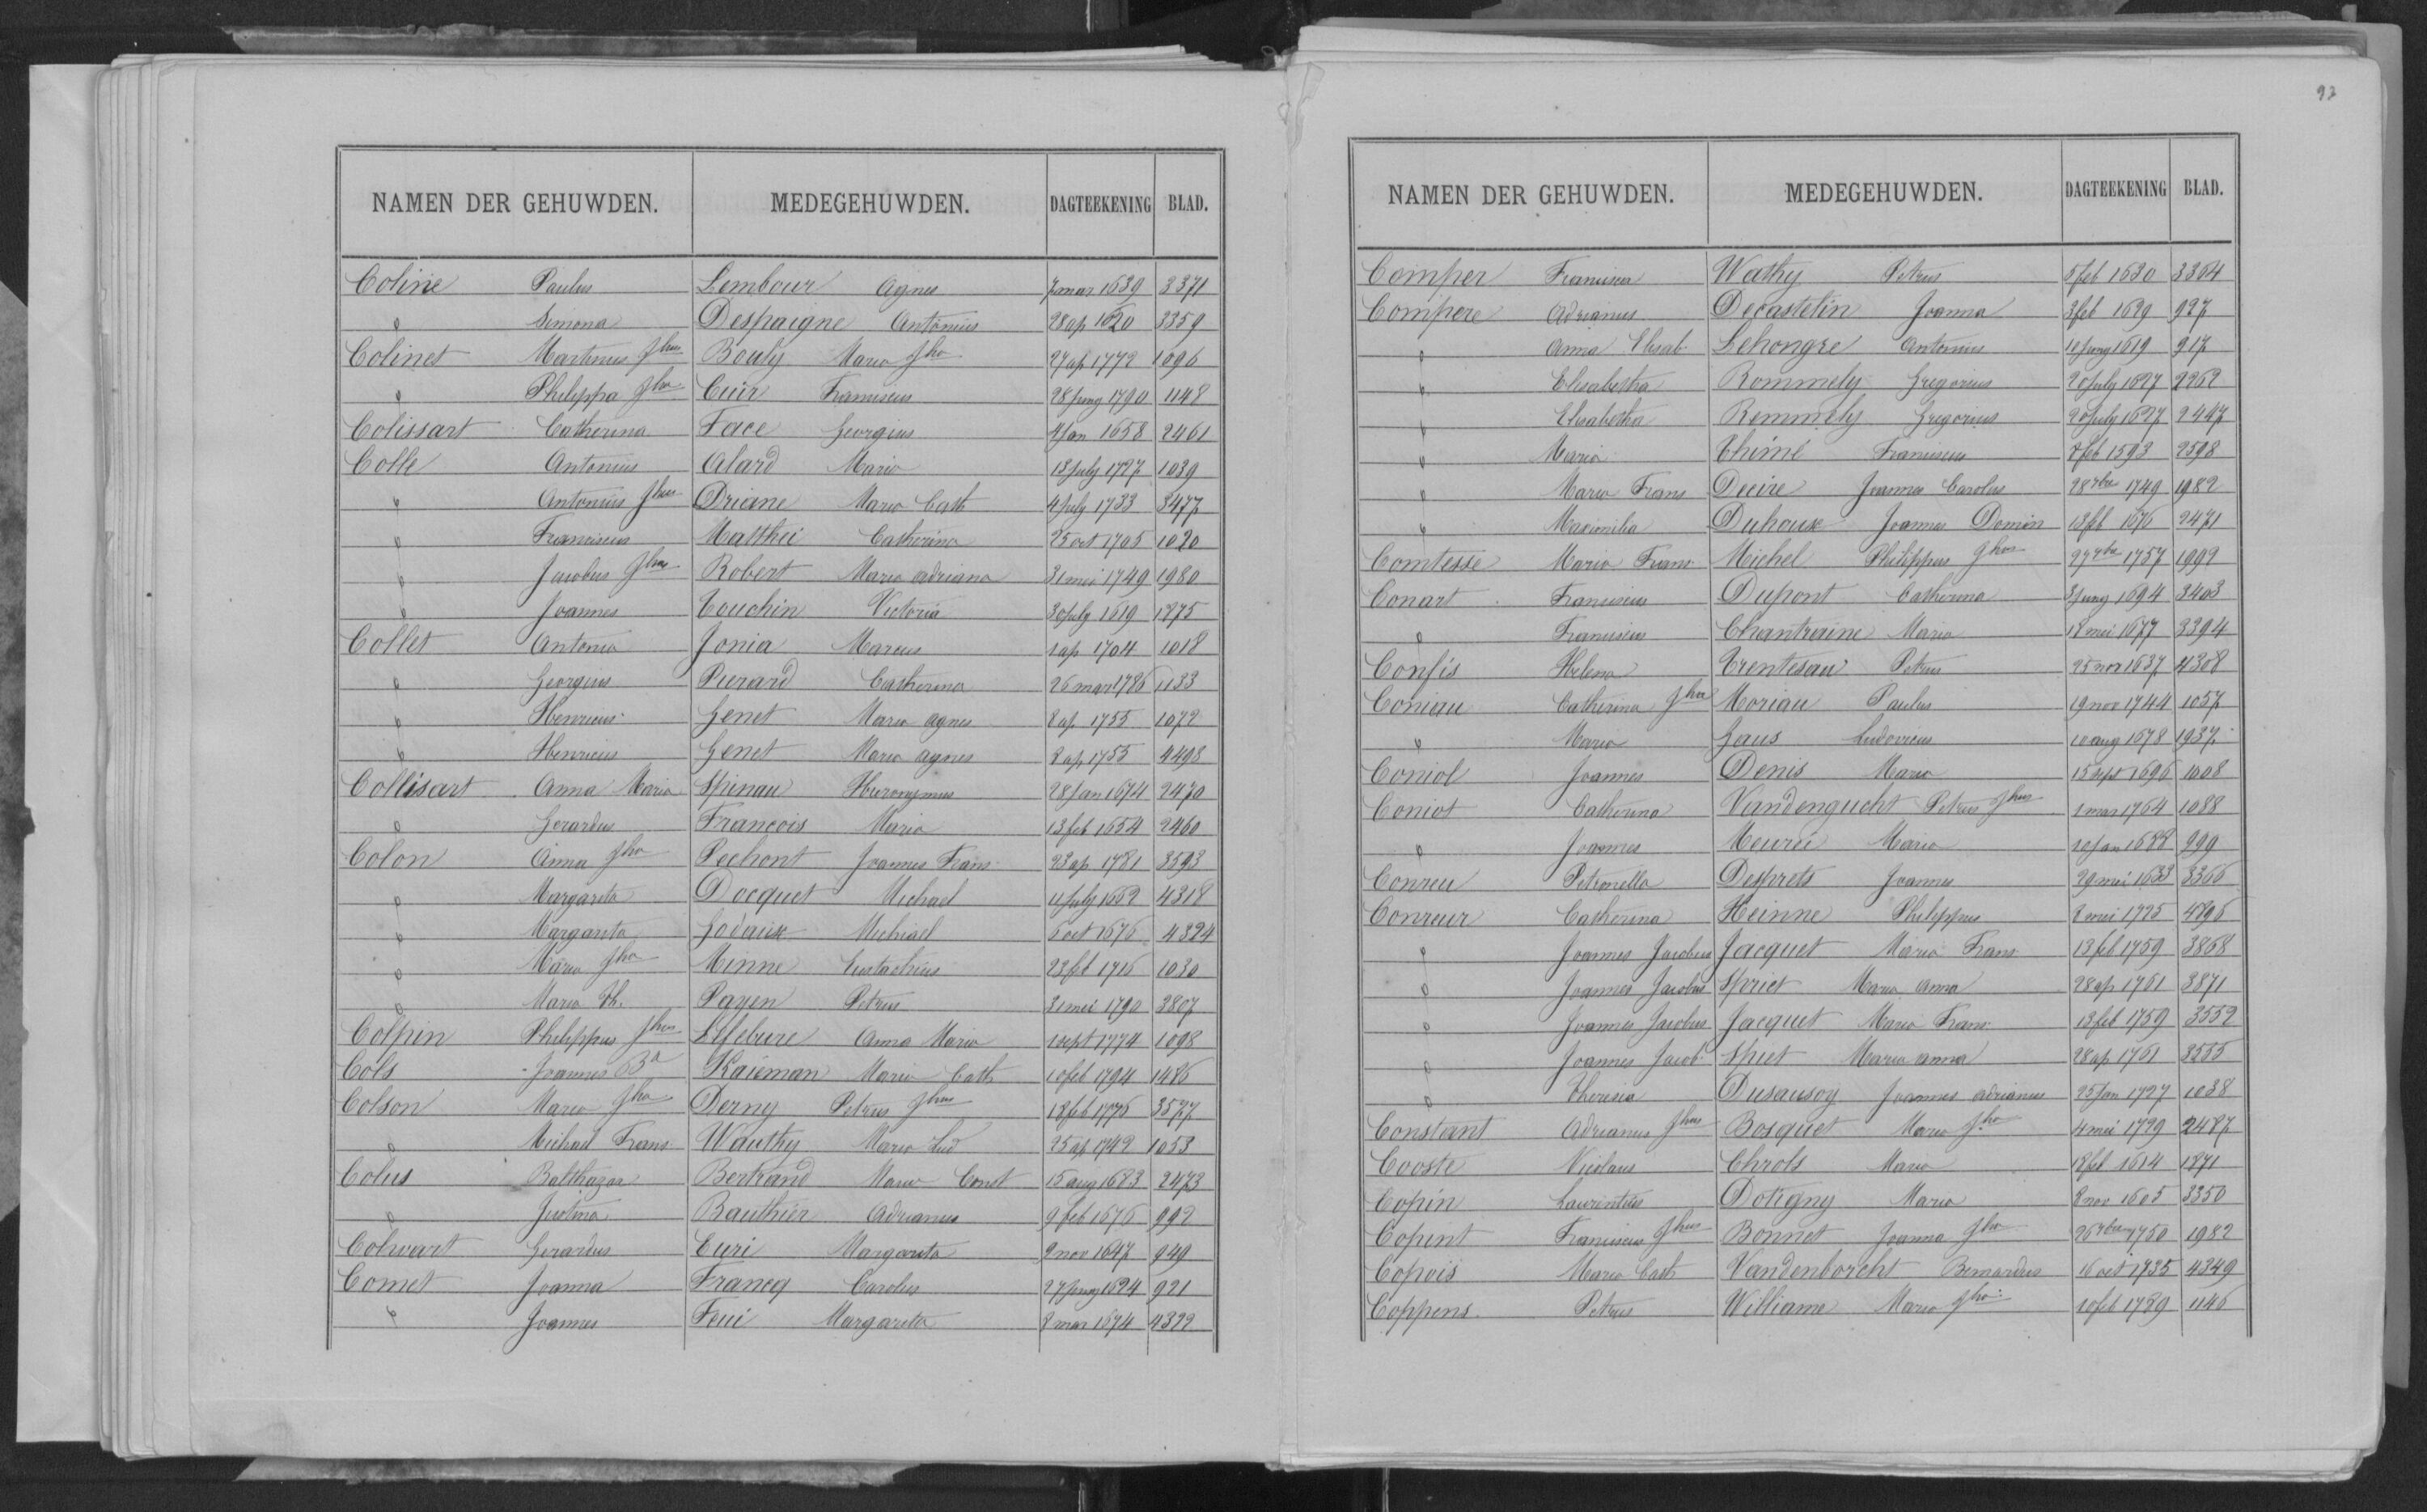 NAMEN DER GEHUWDEN. MEDEGEHUWDEN. DAGTEEKENING BLAD.
Coline Paulus Lembour Agnes 7 mar 1639 3371
" Simona Despaigne Antonius 28 ap 1620 3359
Colinet Martinus Jhus Bouly Maria Jha 27 ap 1772 1096
" Philippa Jha Cuir Franciscus 28 juny 1790 1148
Colissart Catherina Face Georgius 4 jan 1658 2461
Colle Antonius Alard Maria 13 july 1727 1039
" Antonius Jhus Driane Maria Cath 4 july 1733 3477
" Franciscus Matthei Catherina 25 oct 1705 1020
" Jacobus Jhus Robert Maria Adriana 31 mei 1749 1980
" Joannes Couchin Victoria 30 july 1619 1275
Collet Antonia Jonia Marcus 1 ap 1704 1018
" Georgius Pierard Catherina 26 mar 1786 1133
" Henricus Genet Maria Agnes 8 ap 1755 1072
" Henricus Genet Maria Agnes 8 ap 1755 4498
Collisart Anna Maria Spinau Hieronymus 28 jan 1674 2470
" Gerardus Francois Maria 13 feb 1654 2460
Colon Anna Jha Pechont Joannes Frans 23 ap 1781 3593
" Margareta Docquet Michael 11 july 1662 4318
" Margareta Godaux Michael 6 oct 1676 4324
" Maria Jha Minne Eustachius 23 feb 1716 1030
" Maria Th. Payen Petrus 31 mei 1790 3807
Colpin Philippus Jhus Lefebure Anna Maria 1 sept 1774 1098
Cols Joannes Ba Kaieman Maria Cath 10 feb 1794 1486
Colson Maria Jha Derny Petrus Jhus 18 feb 1776 3577
" Michael Frans Wauthy Maria Lud 25 ap 1742 1053
Colus Balthazar Bertrand Maria Const 15 aug 1683 2473
" Justina Bauthier Adrianus 9 feb 1676 992
Colwart Gerardus Curi Margareta 2 nov 1647 949
Comet Joanna Francq Carolus 27 juny 1624 921
" Joannes Feui Margareta 8 mar 1674 4322
93
NAMEN DER GEHUWDEN. MEDEGEHUWDEN. DAGTEEKENING BLAD.
Comper Francisca Wathy Petrus 5 feb 1630 3364
Compere Adrianus Decastelin Joanna 3 feb 1629 927
" Anna Elisab. Lehongre Antonius 10 juny 1619 917
" Elisabetha Rommely Gregorius 20 july 1627 2262
" Elisabetha Remmely Gregorius 20 july 1627 2447
" Maria Thimé Franciscus 8 feb 1593 2598
" Maria Frans Decire Joannes Carolus 28 7ber 1749 1982
" Maximilia Duhoux Joannes Domin 13 feb 1676 2471
Comtesse Maria Frans Michel Philippus Jhus 27 7ber 1757 1992
Conart Franciscus Dupont Catherina 3 juny 1694 3403
" Franciscus Chantraine Maria 18 mei 1677 3394
Confis Helena Trentesau Petrus 25 nov 1637 4308
Coniau Catherina Jha Moriau Paulus 19 nov 1744 1057
" Maria Gaus Ludovicus 10 aug 1678 1937
Coniol Joannes Denis Maria 15 sept 1696 1008
Coniot Catherina Vandengucht Petrus Jhus 1 mar 1764 1088
" Joannes Meurée Maria 10 jan 1688 999
Conreu Petronella Desprets Joannes 29 mei 1633 3366
Conreur Catherina Heinne Philippus 8 mei 1725 4296
" Joannes Jacobus Jacquet Maria Frans 13 feb 1759 3868
" Joannes Jacobus Spriet Maria Anna 28 ap 1761 3871
" Joannes Jacobus Jacquet Maria Frans 13 feb 1759 3552
" Joannes Jacob. Spiet Maria Anna 28 ap 1761 3555
" Theresia Dusausoy Joannes Adrianus 25 jan 1727 1038
Constant Adrianus Jhus Bosquet Maria Jha 4 mei 1729 2487
Cooste Nicolaus Chrols Maria 18 feb 1614 1271
Copin Laurentius Dotigny Maria 8 nov 1605 3350
Copint Franciscus Jhus Bonnet Joanna Jha 26 7ber 1750 1982
Copois Maria Cath Vandenborcht Bernardus 16 oct 1735 4349
Coppens Petrus Williame Maria Jha: 10 feb 1789 1146